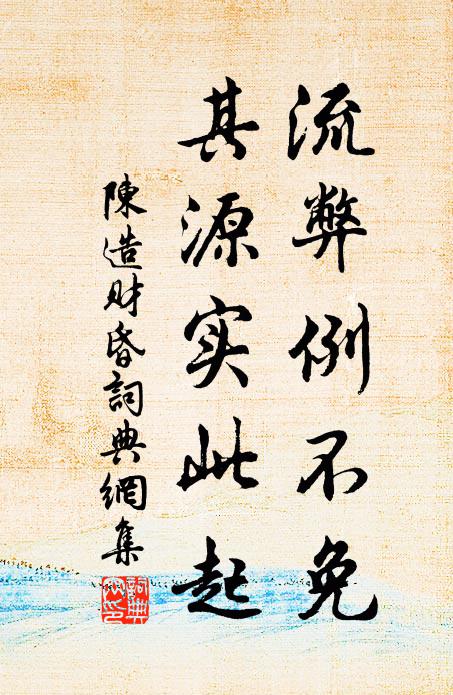 流弊例不免
其源实此起
陳造财昏詞典網集